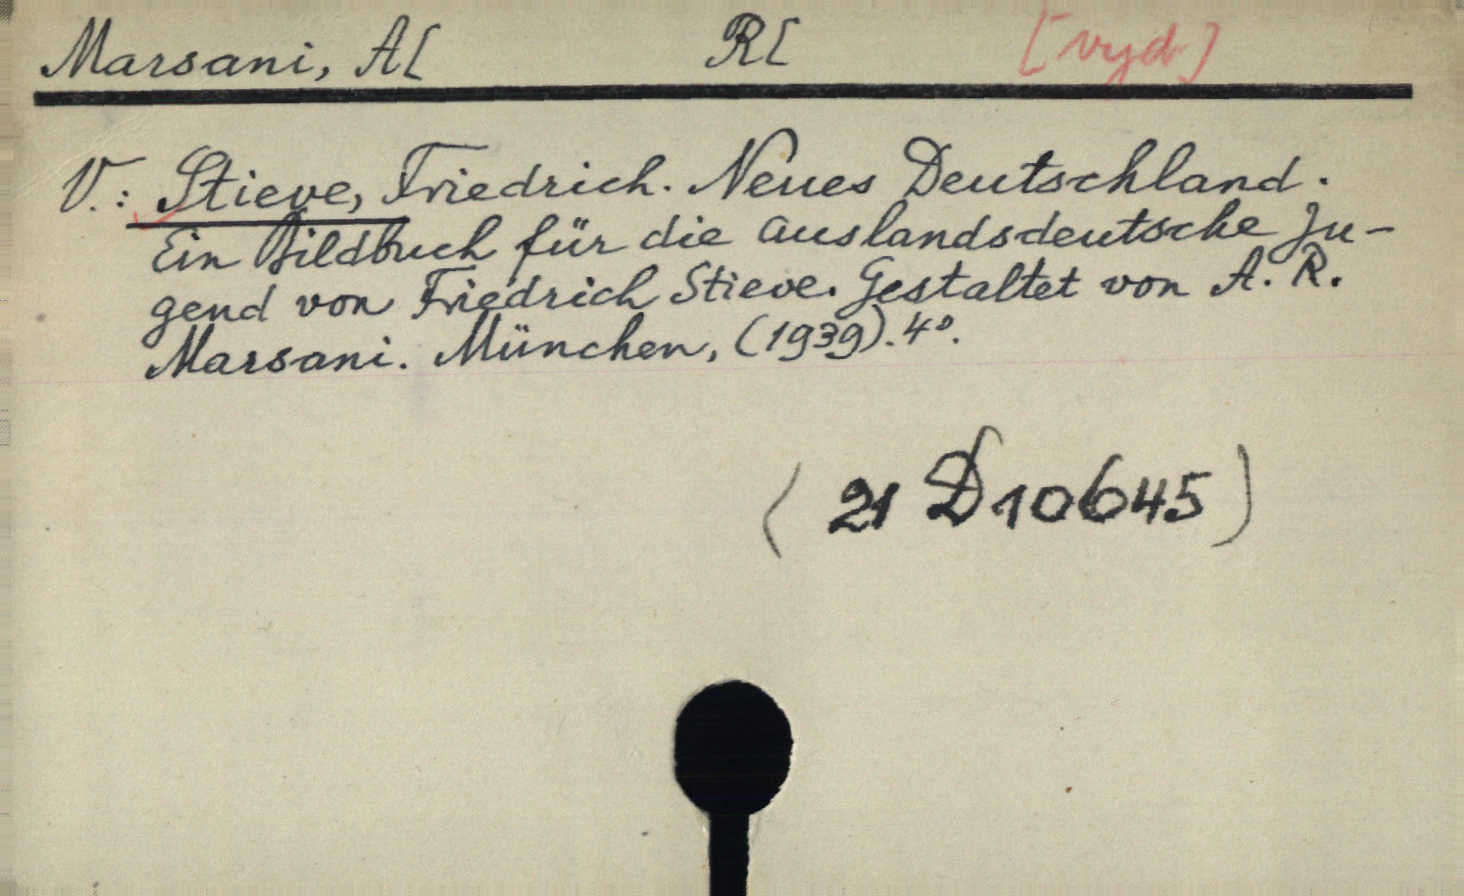 Marsani, A[ R[ [vyd]
V.: Stieve, Friedrich. Neues Deutschland.
Ein Bildbuch für die auslandsdeutsche Ju-
gend von Friedrich Stieve. Gestaltet von A. R.
Marsani. München, (1939). 4°.
(21 D 10645)